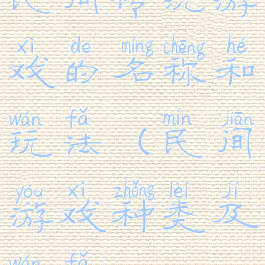 民间传统游
xì de míng chēng hé
戏的名称和
wán fǎ mín jiān
玩法（民间
yóu xì zhǒng lèi jí
游戏种类及
wán fǎ